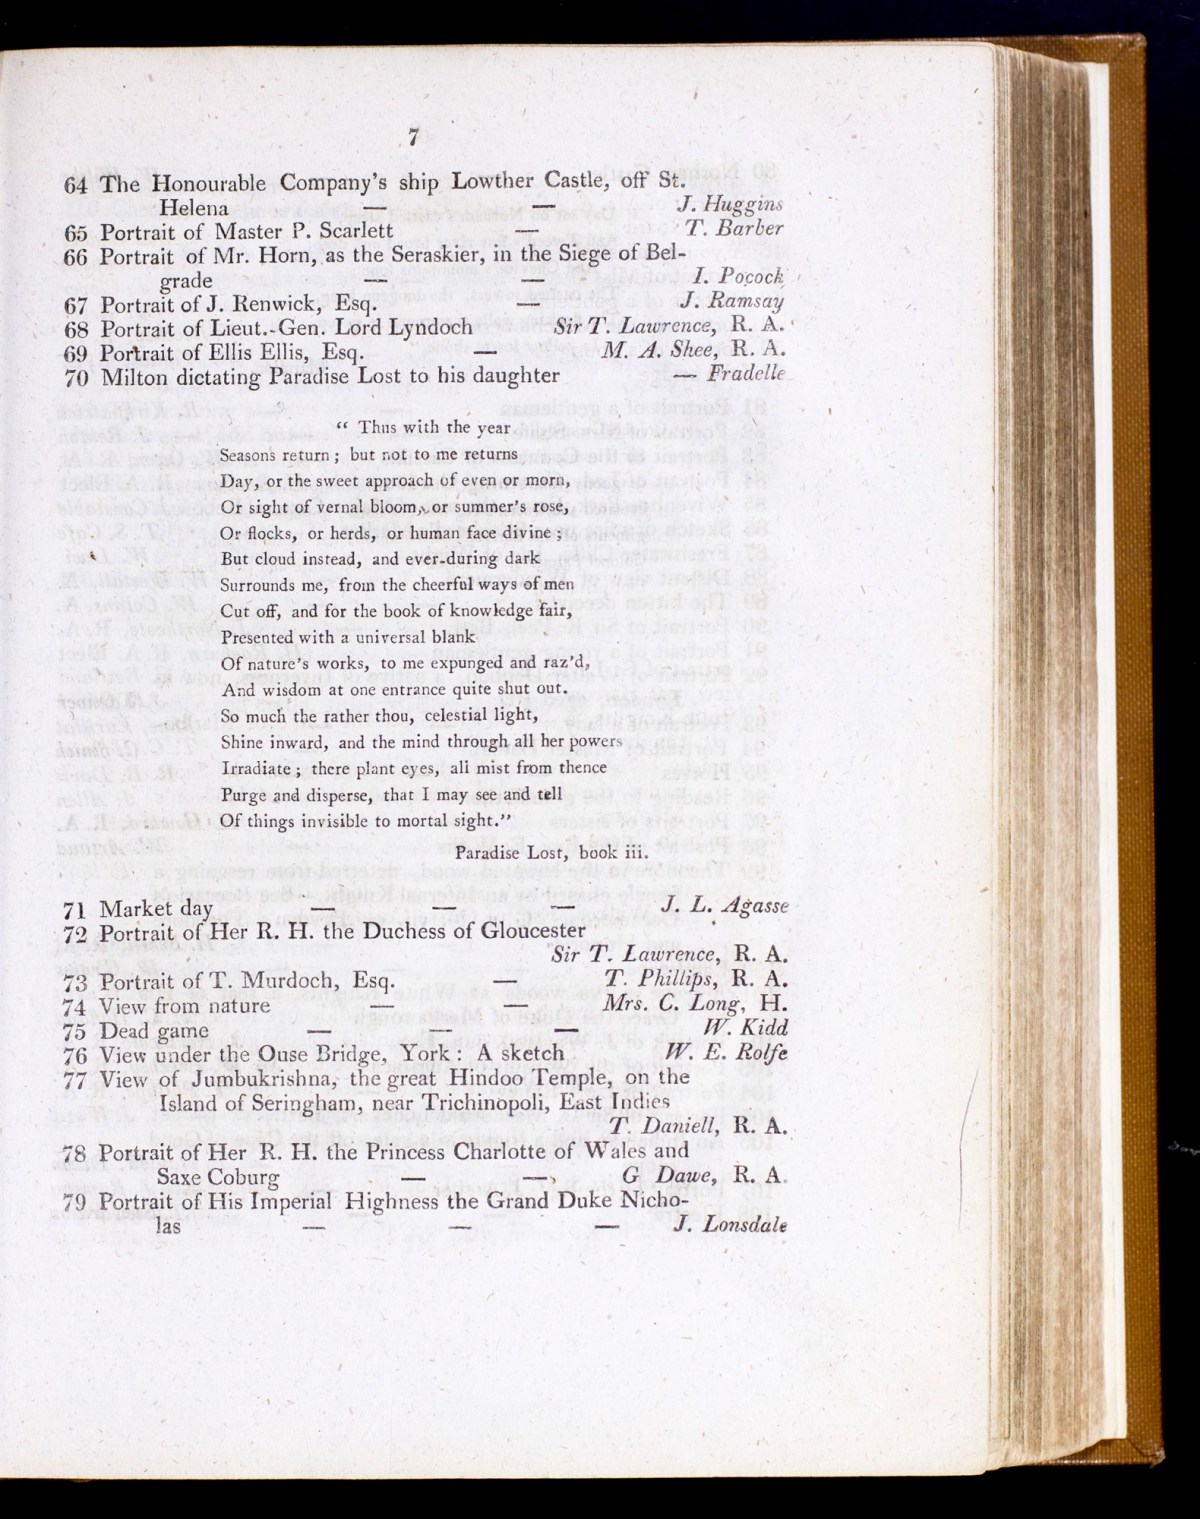 7
64 The Honourable Company's ship Lowther Castle, off St.
Helena — — J. Huggins
65 Portrait of Master P. Scarlett — T. Barber
66 Portrait of Mr. Horn, as the Seraskier, in the Siege of Bel-
grade — — I. Pocock
67 Portrait of J. Renwick, Esq. — J. Ramsay
68 Portrait of Lieut.-Gen. Lord Lyndoch Sir T. Lawrence, R. A.
69 Portrait of Ellis Ellis, Esq. — M. A. Shee, R. A.
70 Milton dictating Paradise Lost to his daughter — Fradelle
“ Thus with the year
Seasons return ; but not to me returns
Day, or the sweet approach of even or morn,
Or sight of vernal bloom, or summer's rose,
Or flocks, or herds, or human face divine ;
But cloud instead, and ever-during dark
Surrounds me, from the cheerful ways of men
Cut off, and for the book of knowledge fair,
Presented with a universal blank
Of nature's works, to me expunged and raz'd,
And wisdom at one entrance quite shut out.
So much the rather thou, celestial light,
Shine inward, and the mind through all her powers
Irradiate ; there plant eyes, all mist from thence
Purge and disperse, that I may see and tell
Of things invisible to mortal sight.”
Paradise Lost, book iii.
71 Market day — — — J. L. Agasse
72 Portrait of Her R. H. the Duchess of Gloucester
Sir T. Lawrence, R. A.
73 Portrait of T. Murdoch, Esq. — T. Phillips, R. A.
74 View from nature — — Mrs. C. Long, H.
75 Dead game — — — W. Kidd
76 View under the Ouse Bridge, York : A sketch W. E. Rolfe
77 View of Jumbukrishna, the great Hindoo Temple, on the
Island of Seringham, near Trichinopoli, East Indies
T. Daniell, R. A.
78 Portrait of Her R. H. the Princess Charlotte of Wales and
Saxe Coburg — — G Dawe, R. A.
79 Portrait of His Imperial Highness the Grand Duke Nicho-
las — — — J. Lonsdale